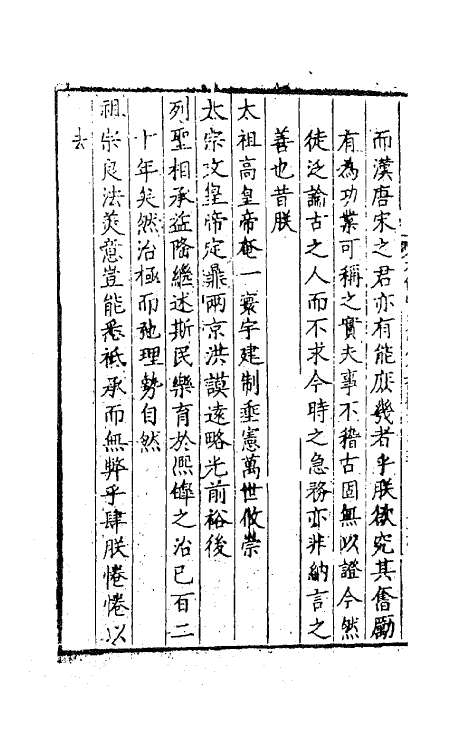 而漢唐宋之君亦有能庶幾者乎朕欲究其奮勵
有為功業可稱之實夫事不稽古固無以證今然
徒泛論古之人而不求今時之急務亦非納言之
善也昔朕
太祖高皇帝奄一寰宇建制垂憲萬世攸崇
太宗文皇帝定鼎兩京洪謨遠略光前裕後
列聖相承益隆繼述斯民樂育於熈皥之治已百二
十年矣然治極而弛理勢自然
祖宗良法羙意豈能悉祗承而無弊乎肆朕惓惓以
去